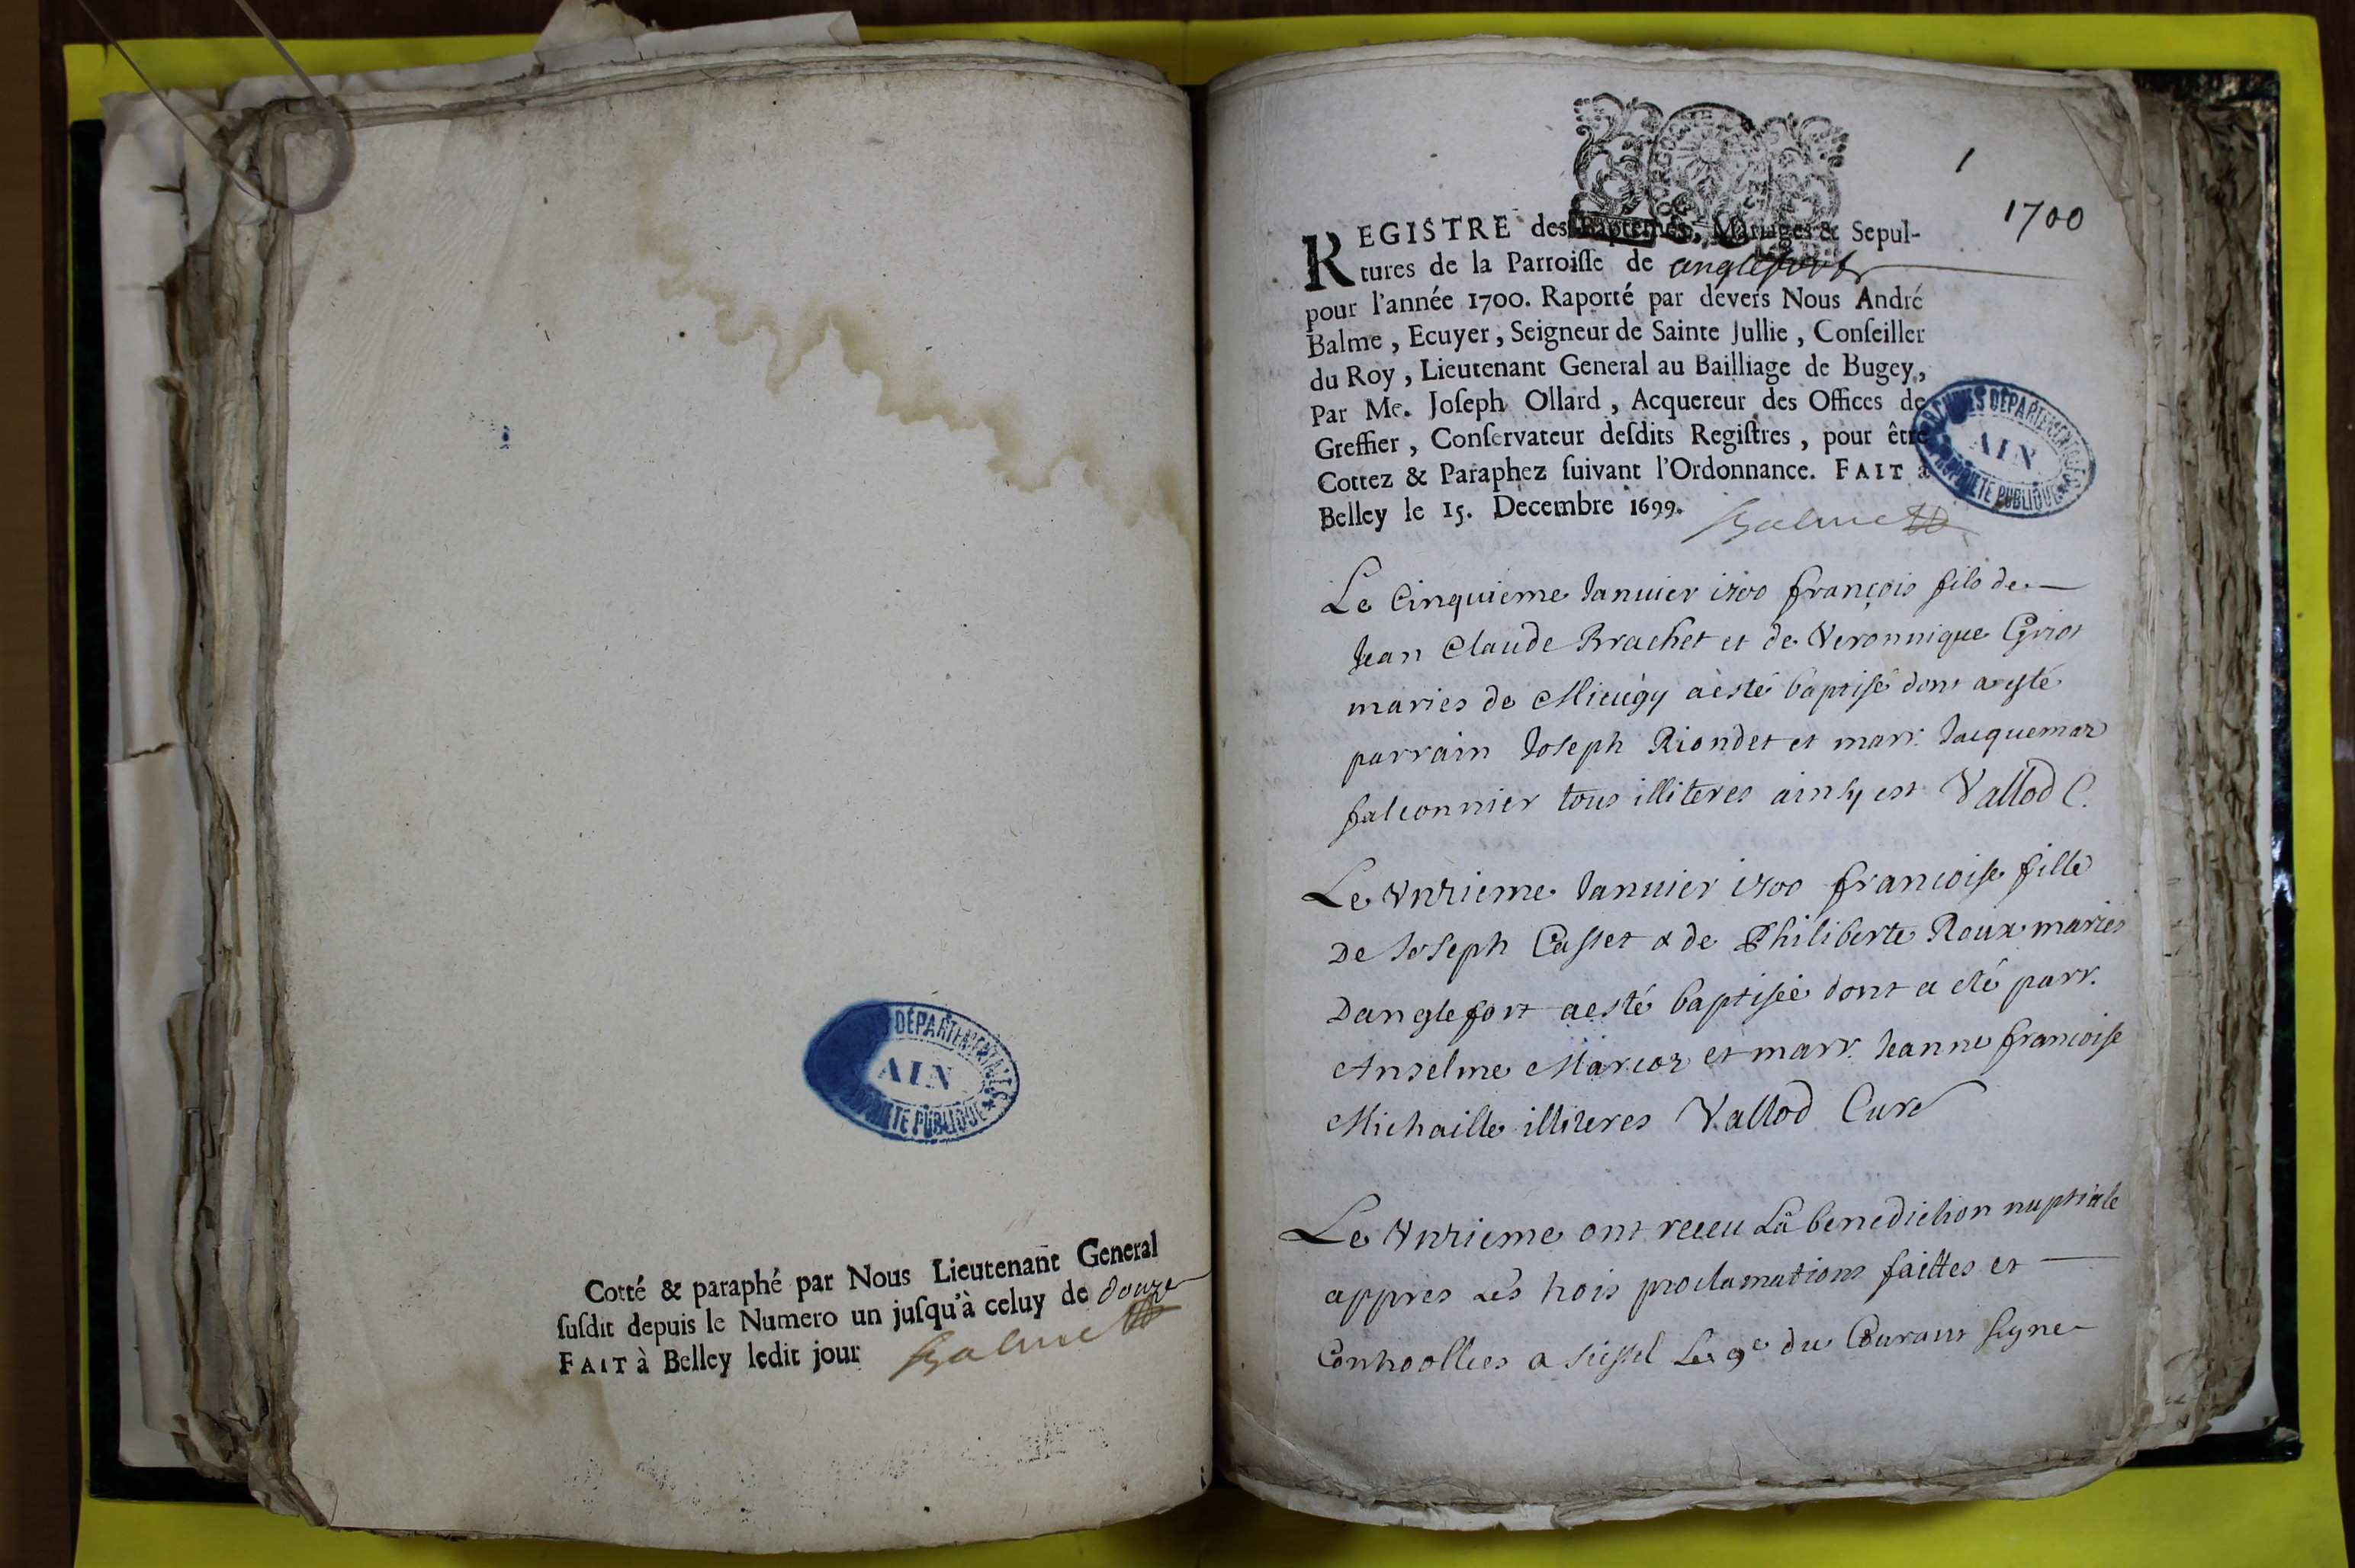 Cotté & paraphé par Nous Lieutenant General
ſuſdit depuis le Numero un juſqu'à celuy de douze
FAIT à Belley ledit jour Balme
DÉPARTEMENTALES
AIN
PROPRIÉTÉ PUBLIQUE
1
1700
REGISTRE des Baptemes, Mariages & Sepul-
tures de la Parroiſſe de anglefort
pour l'année 1700. Raporté par devers Nous André
Balme, Ecuyer, Seigneur de Sainte Jullie, Conſeiller
du Roy, Lieutenant General au Bailliage de Bugey,
Par Me. Joſeph Ollard, Acquereur des Offices de
Greffier, Conſervateur deſdits Regiſtres, pour être
Cottez & Paraphez ſuivant l'Ordonnance. FAIT à
Belley le 15. Decembre 1699. Balme
ARCHIVES DÉPARTEMENTALES
AIN
PROPRIÉTÉ PUBLIQUE
Le Cinquieme Januier 1700 françois fils de
Jean Claude Brachet et de Veronnique
maries de Mieugy a esté baptisé dont a esté
parrain Joseph Riondet et marr. Jacquemaz
falconnier tous illiteres ainsy est Vallod C.
Le Vnzieme Januier 1700 francoise fille
De Joseph Casset & de Philiberte Roux maries
Danglefort a esté baptisée dont a eté parr.
Anselme Marcoz et marr. Jeanne francoise
Michaille illiteres Vallod Curé
Le Vnzieme ont receu La benediction nuptiale
appres Les trois proclamations faittes et
Controollees a seissel Le 9e du Courant signe